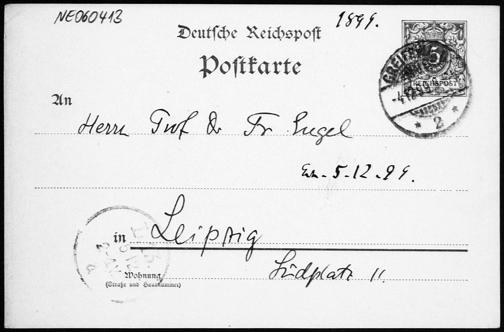 NE060413
1899.
Deutsche Reichspost
Postkarte
5
REICHSPOST
GREIFSW
-4.12
* 2 *
An
Herrn Prof Dr Fr. Engel
5-12.99.
in Leipzig
Wohnung
(Straße und Hausnummer)
Südplatz 11.